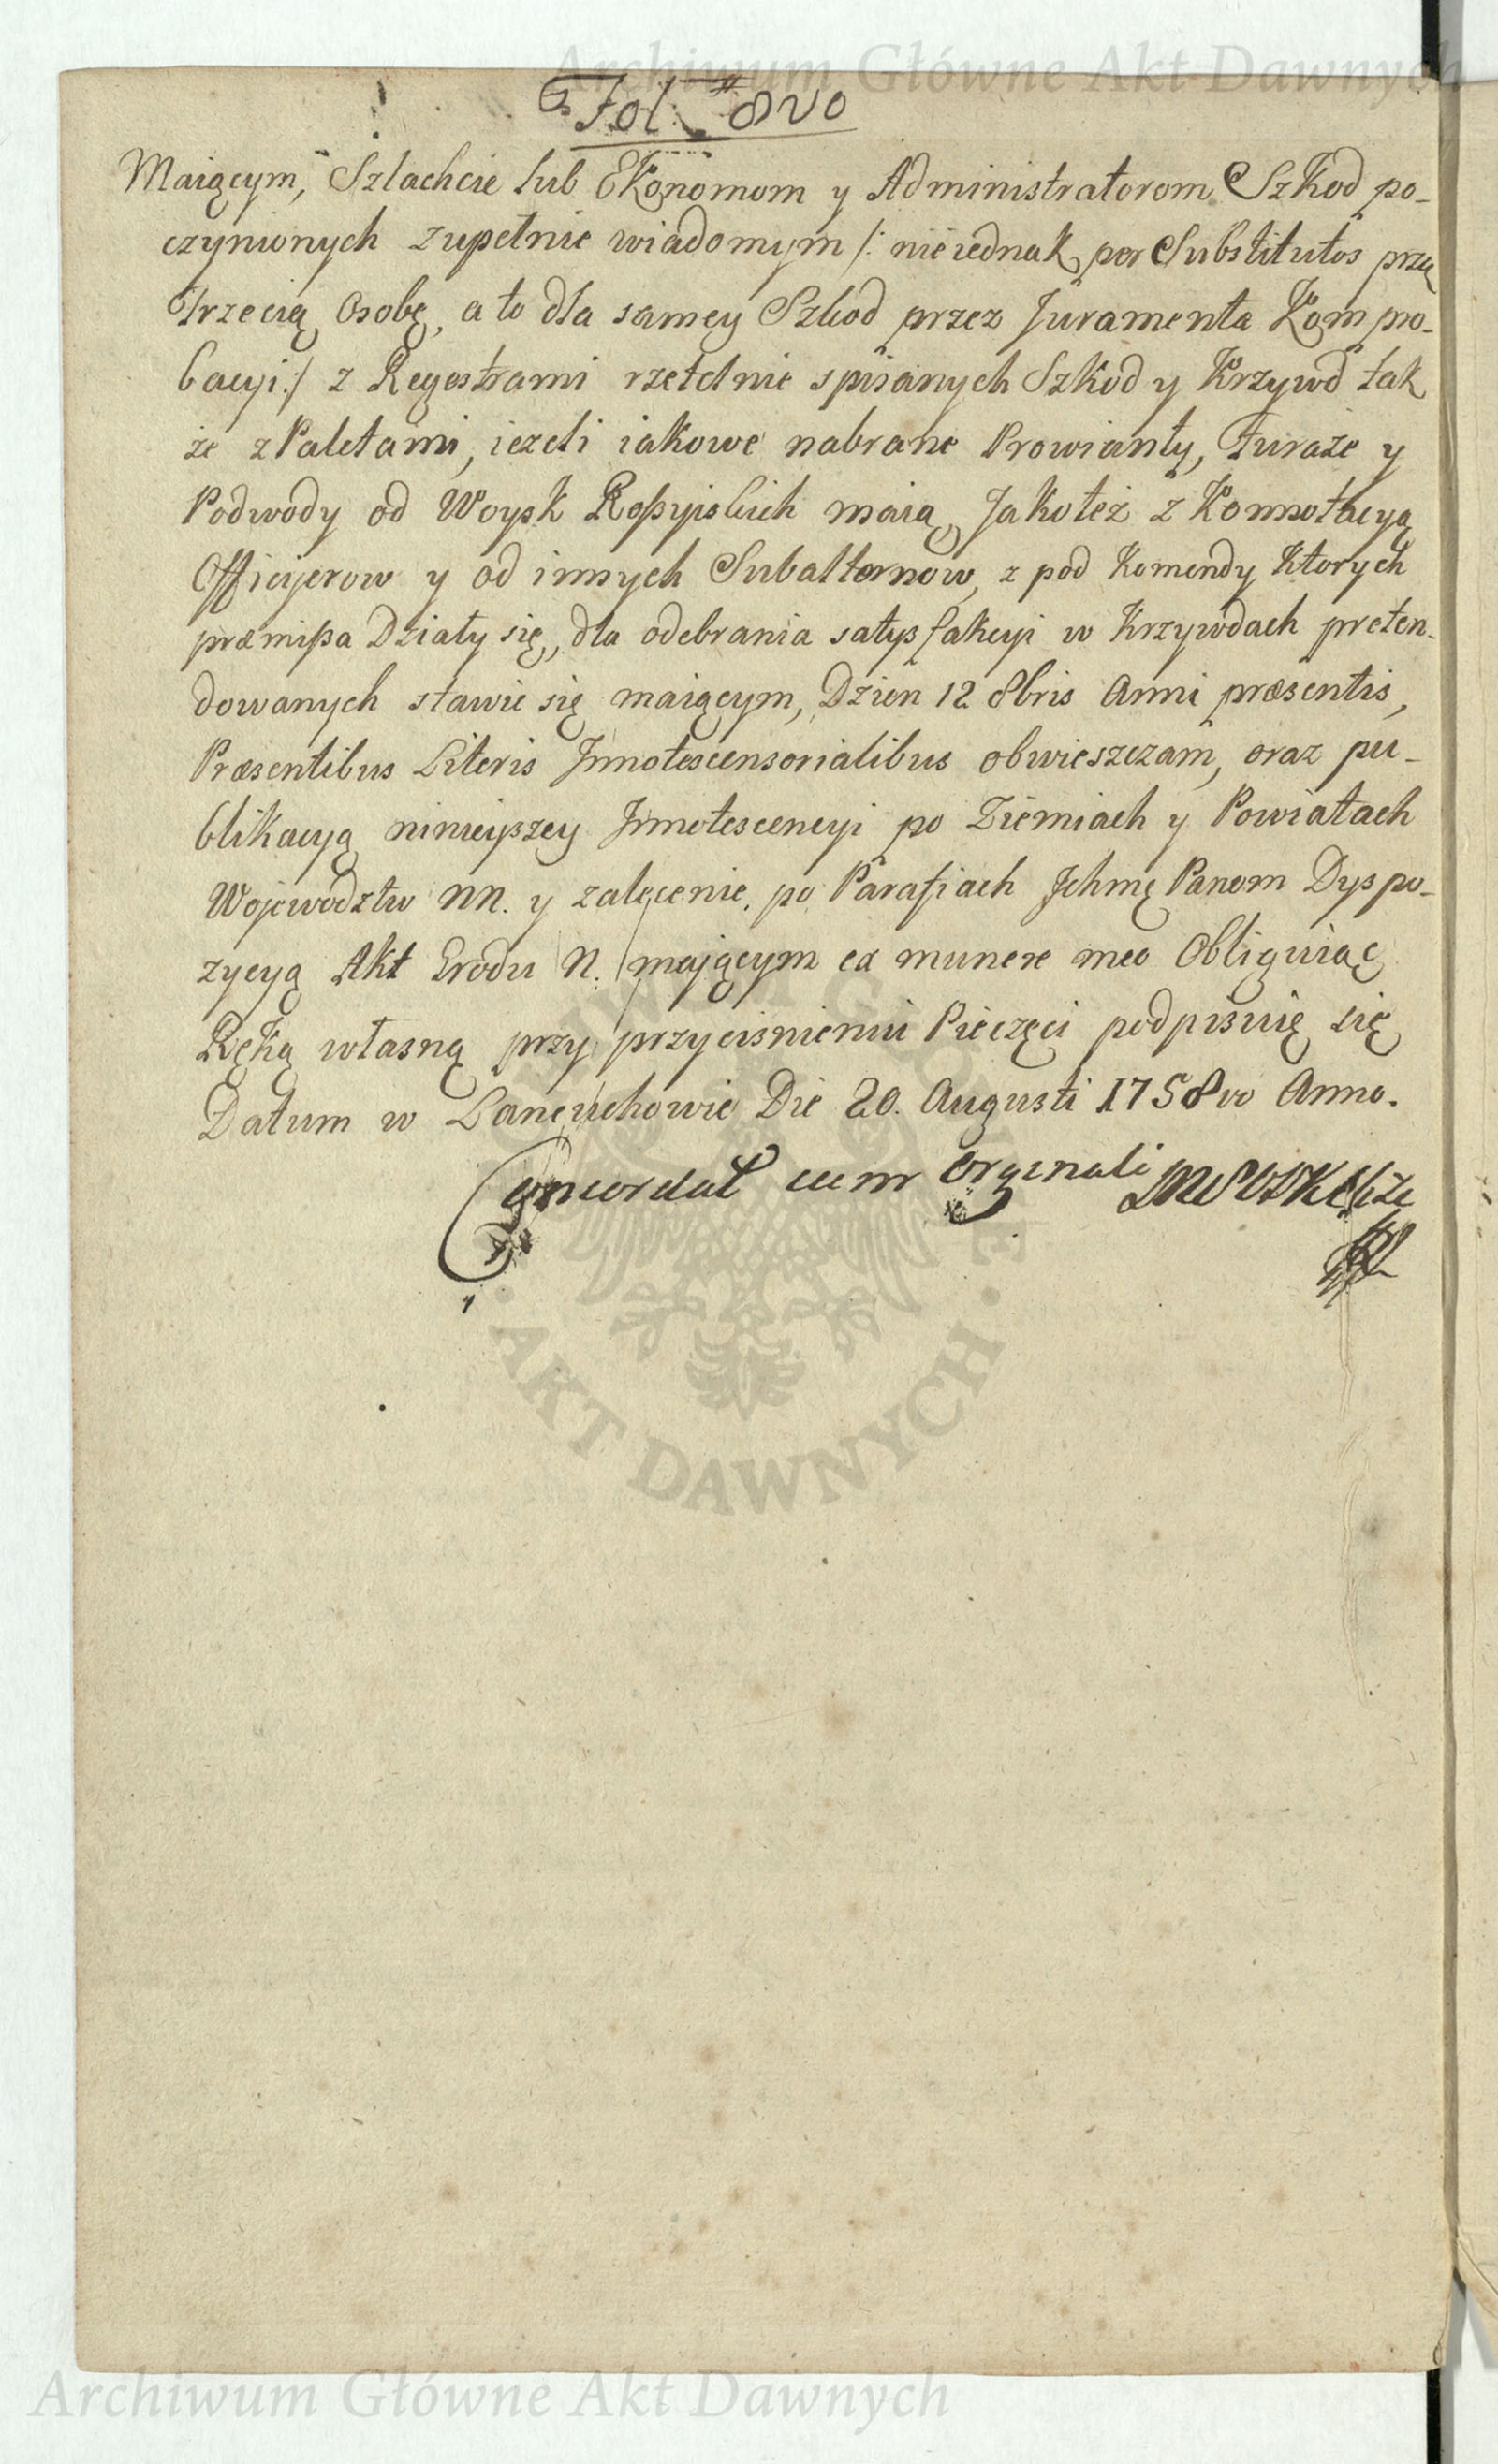 Archiwum Główne Akt Dawnych
Fol: 8vo
Maiącym, Szlachcie lub Ekonomom y Administratorom Szkod po-
czynionych zupełnie wiadomym /: nie iednak per Substitutos przą
Trzecią Osobę, a to dla samey Szkod przez Juramenta Kompro-
bacyi :/ z Regestrami rzetelnie spisanych Szkod y Krzywd tak
że z Paletami, ieżeli iakowe nabrane Prowianty, Furaże y
Podwody od Woysk Rossyiskich maią, Jakoteż z Konnotacyą
Officyerow y od innych Subalternow, z pod Komendy Ktorych
præmissa Działy się, dla odebrania satysfakcyi w Krzywdach preten-
dowanych stawić się maiącym, Dzien 12 8bris Anni præsentis,
Præsentibus Literis Innotescensorialibus obwieszczam, oraz pu-
blikacyą ninieyszey Innotescencyi po Ziemiach y Powiatach
Wojewodztw NN. y zalecenie po Parafiach Jchmę Panom Dyspo-
zycyą Akt Grodu N. mającym ex munere meo Obliguiąc
Ręką własną przy przycisnieniu Pieczęci podpisuię się
Datum w Lancuchowie Die 20. Augusti 1758vo Anno.
Concordat cum Orginali
AKT DAWNYCH
Archiwum Główne Akt Dawnych